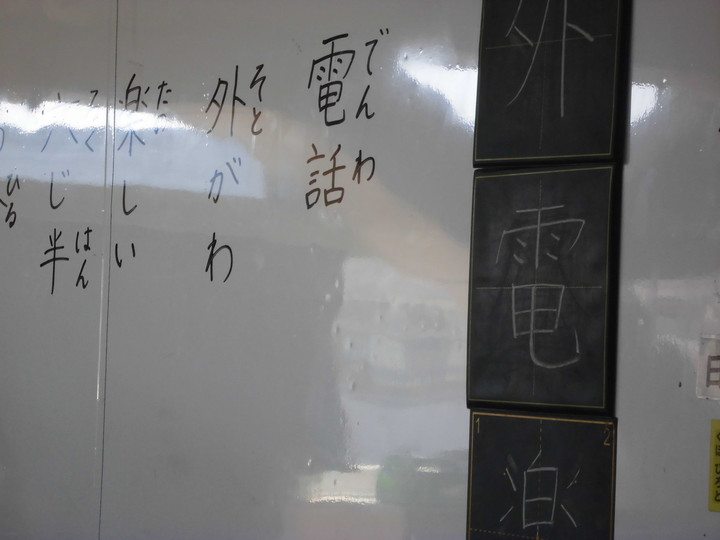 外
電
楽
1 2
でんわ
電話
そと
外がわ
たの
楽しい
ろく
六じ半
はん
ひる